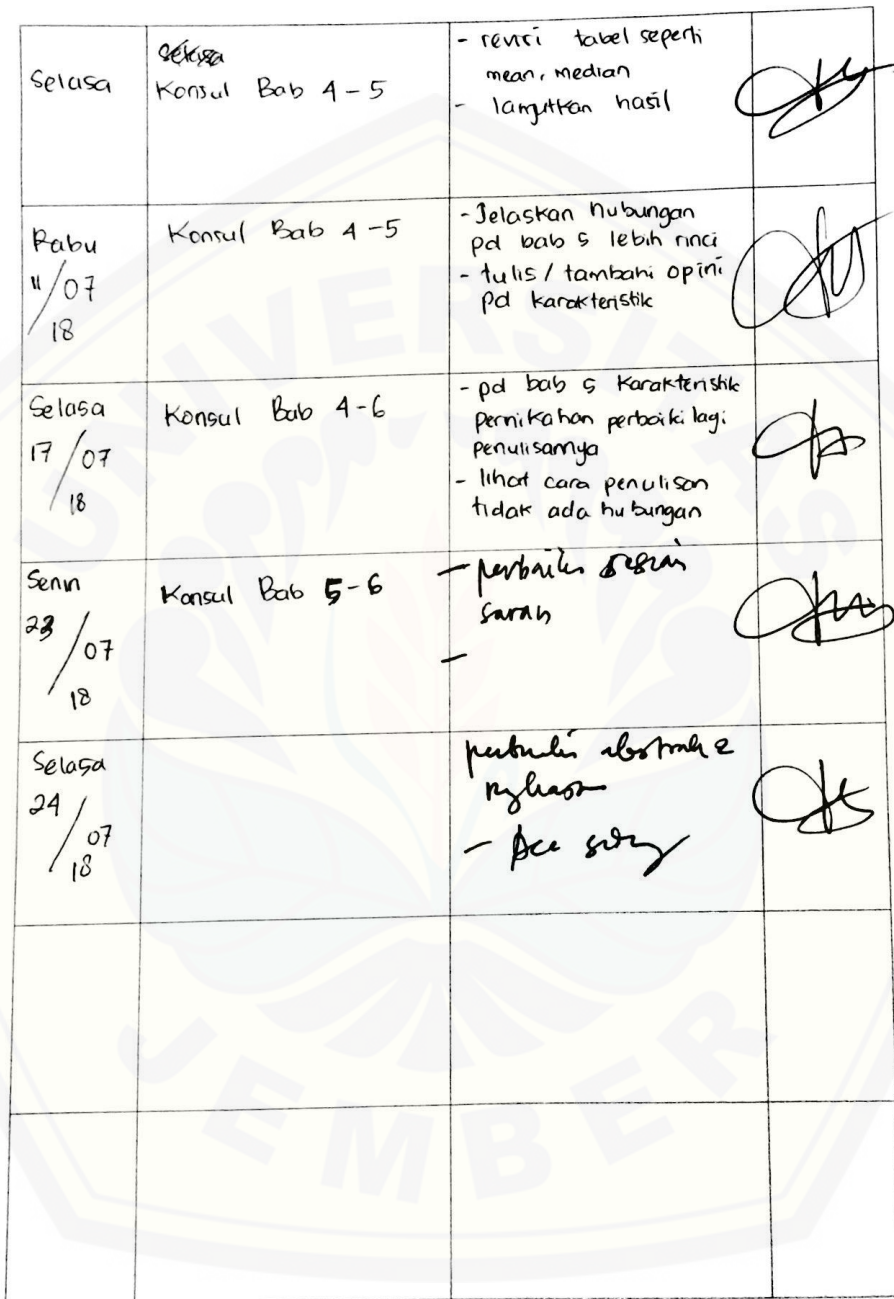 Selasa
Konsul Bab 4-5
- revisi tabel seperti
mean, median
- lanjutkan hasil
Rabu
11/07
18
Konsul Bab 4-5
- Jelaskan hubungan
pd bab 5 lebih rinci
- tulis / tambahi opini
pd karakteristik
Selasa
17/07
18
Konsul Bab 4-6
- pd bab 5 karakteristik
pernikahan perbaiki lagi
penulisannya
- lihat cara penulisan
tidak ada hubungan
Senin
23/07
18
Konsul Bab 5-6
- perbaiki
saran
-
Selasa
24/07
18
- Acc
UNIVERSITAS
JEMBER